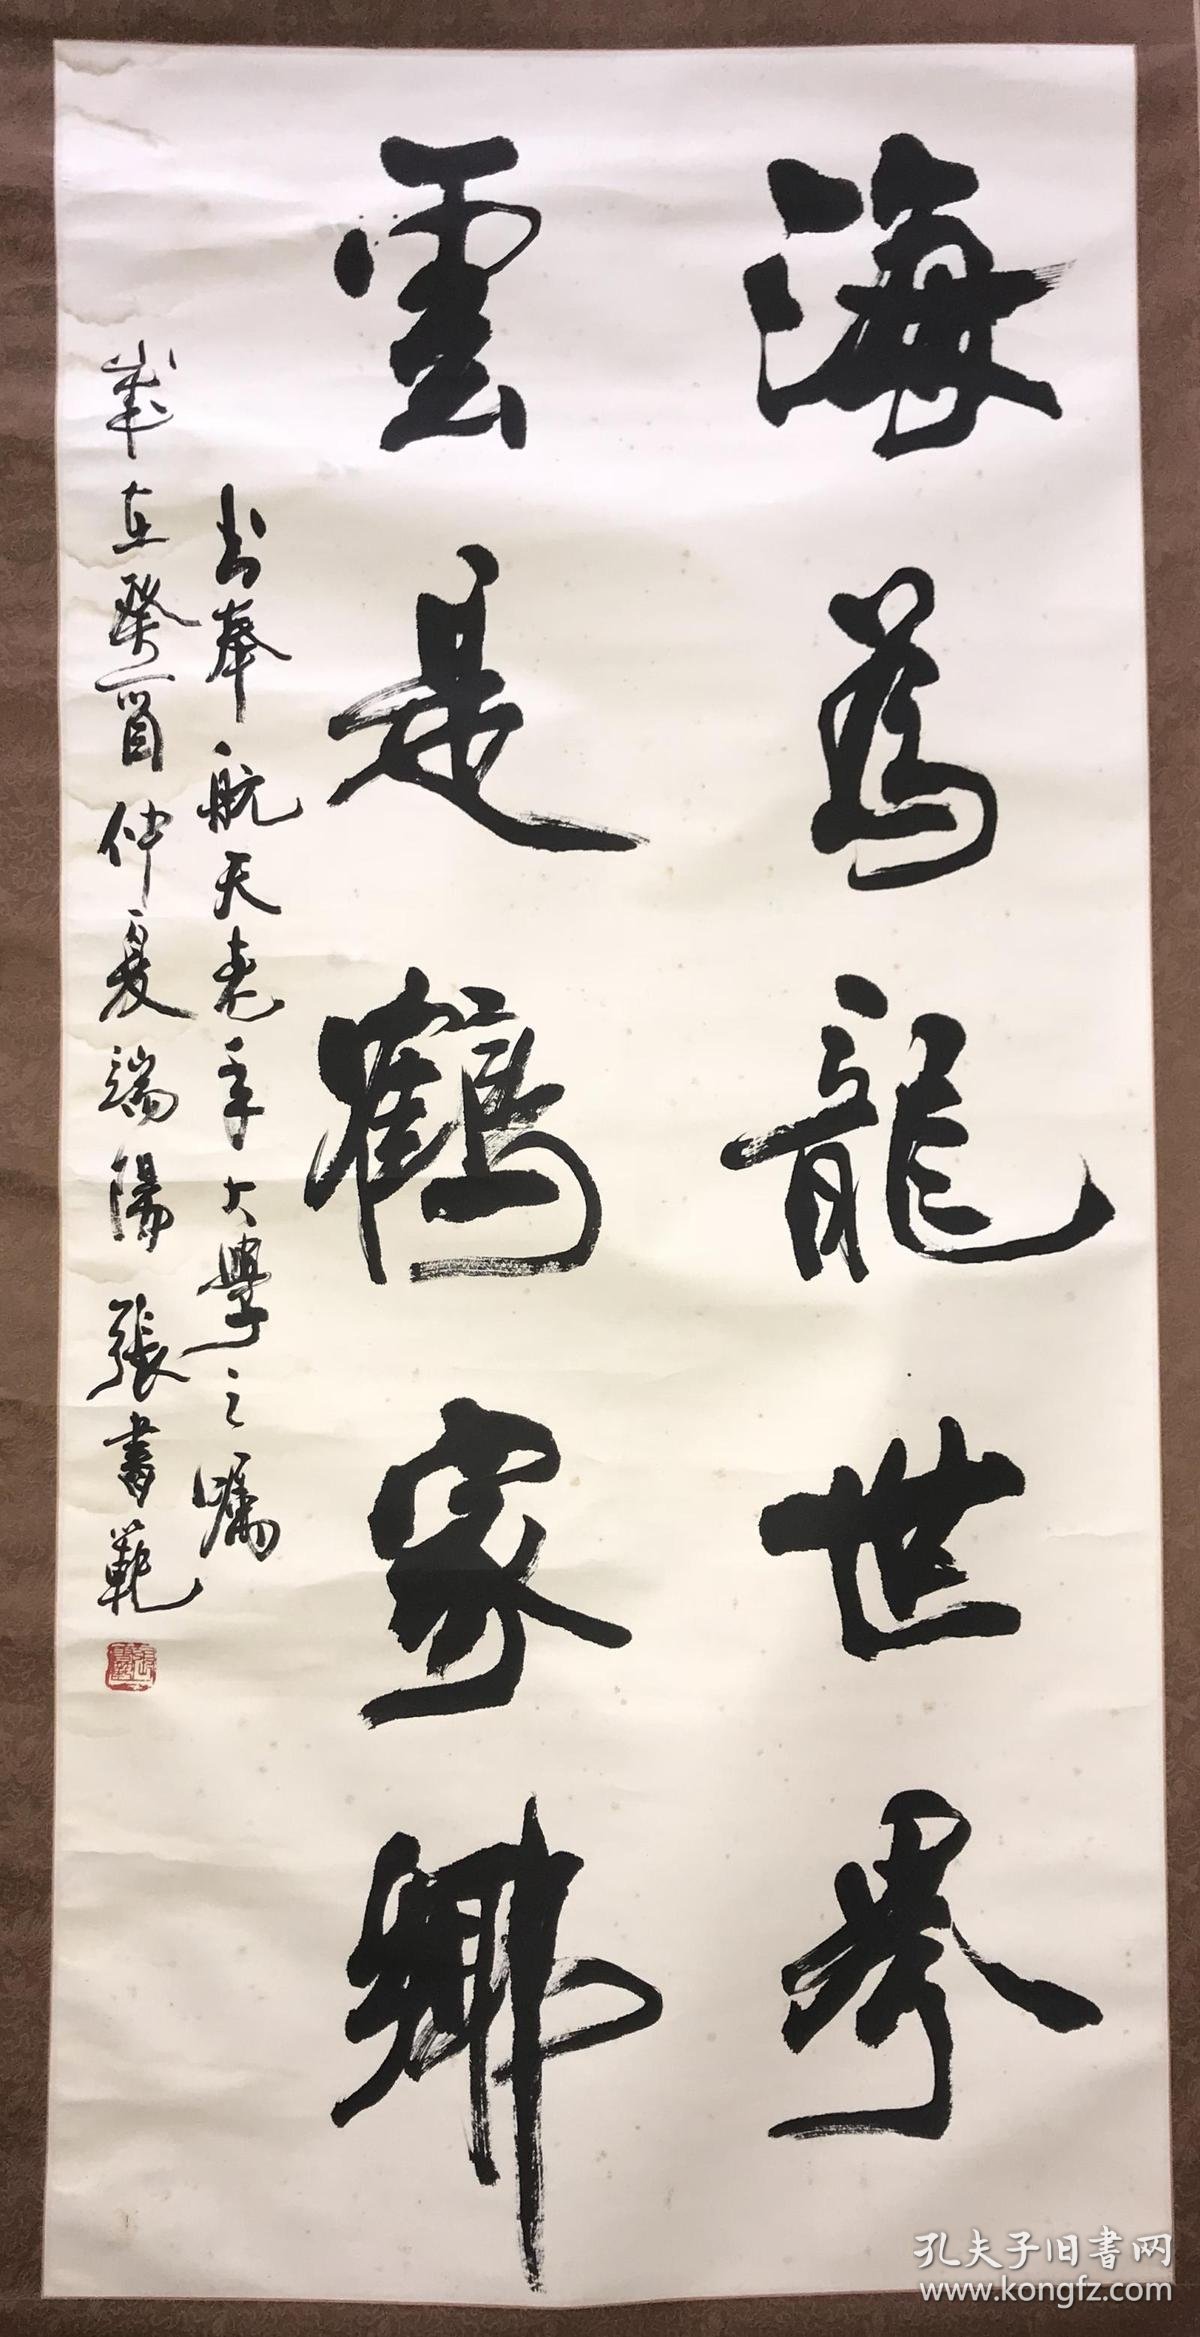 海為龍世界
雲是鶴家鄉
书奉航天老年大學之嘱
歲在癸酉仲夏端陽張書範
孔夫子旧書网
www.kongfz.com